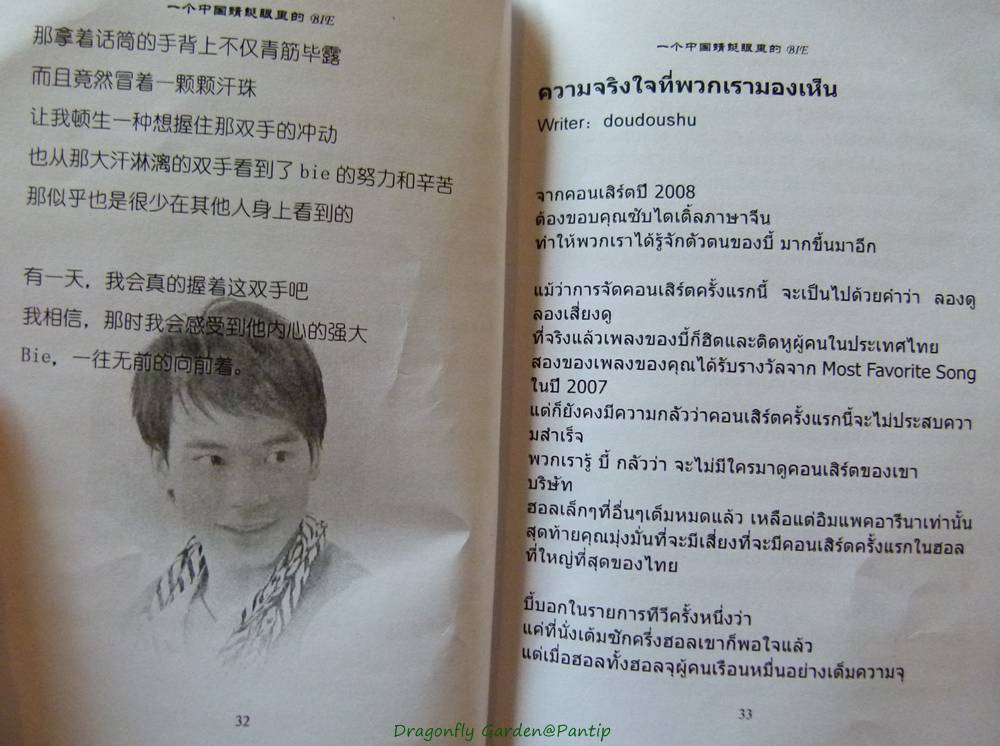 一个中国蜻蜓眼里的 BIE
那拿着话筒的手背上不仅青筋毕露
而且竟然冒着一颗颗汗珠
让我顿生一种想握住那双手的冲动
也从那大汗淋漓的双手看到了 bie 的努力和辛苦
那似乎也是很少在其他人身上看到的
有一天，我会真的握着这双手吧
我相信，那时我会感受到他内心的强大
Bie，一往无前的向前着。
32
一个中国蜻蜓眼里的 BIE
ความจริงใจที่พวกเรามองเห็น
Writer：doudoushu
จากคอนเสิร์ตปี 2008
ต้องขอบคุณซับไตเติ้ลภาษาจีน
ทำให้พวกเราได้รู้จักตัวตนของบี้ มากขึ้นมาอีก
แม้ว่าการจัดคอนเสิร์ตครั้งแรกนี้ จะเป็นไปด้วยคำว่า ลองดู
ลองเสี่ยงดู
ที่จริงแล้วเพลงของบี้ก็ฮิตและติดหูผู้คนในประเทศไทย
สองของเพลงของคุณได้รับรางวัลจาก Most Favorite Song
ในปี 2007
แต่ก็ยังคงมีความกลัวว่าคอนเสิร์ตครั้งแรกนี้จะไม่ประสบควา
มสำเร็จ
พวกเรารู้ บี้ กลัวว่า จะไม่มีใครมาดูคอนเสิร์ตของเขา
บริษัท
ฮอลเล็กๆที่อื่นๆเต็มหมดแล้ว เหลือแต่อิมแพคอารีนาเท่านั้น
สุดท้ายคุณมุ่งมั่นที่จะมีเสี่ยงที่จะมีคอนเสิร์ตครั้งแรกในฮอล
ที่ใหญ่ที่สุดของไทย
บี้บอกในรายการทีวีครั้งหนึ่งว่า
แค่ที่นั่งเต็มซักครึ่งฮอลเขาก็พอใจแล้ว
แต่เมื่อฮอลทั้งฮอลจุผู้คนเรือนหมื่นอย่างเต็มความจุ
33
Dragonfly Garden@Pantip